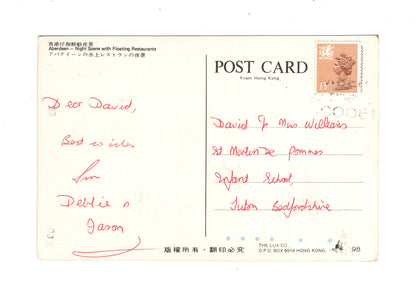 香港仔海鮮舫夜景
Aberdeen – Night Scene with Floating Restaurants
アバディーンの水上レストランの夜景
POST CARD
From Hong Kong
Dear David,
Best wishes
from
Debbie n
Jason
David c/o Mrs Williams
St Martin De Pommes
Infant School,
Luton Bedfordshire
版權所有・翻印必究
THE LUX CO.,
G.P.O. BOX 8514 HONG KONG.
98